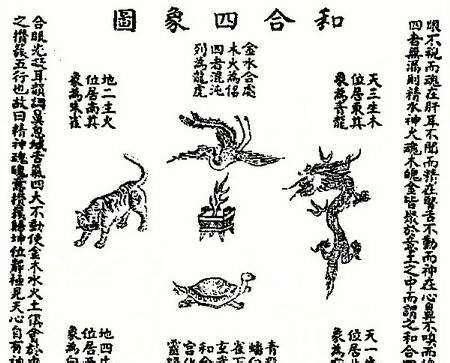 和合四象圖
眼不視而魂在肝耳不聞而精在腎舌不動而神在心鼻不嗅而
四者無漏則精水神火魂木魄金皆聚於意土之中而謂之和合
天三生木
位居東其
象為青龍
金水合處
木火為侶
四者混沌
列為龍虎
地二生火
位居南其
象為朱雀
天一
位居北
象為
青龍
蟠
雀下
玄武
和合
宮化
地四生
位居西
象為白
合眼光凝耳韻調鼻息緘舌氣四大不動使金木水火土俱會於
之攢簇五行也故曰精神魂魄意攢簇歸坤位靜極見天心自有神